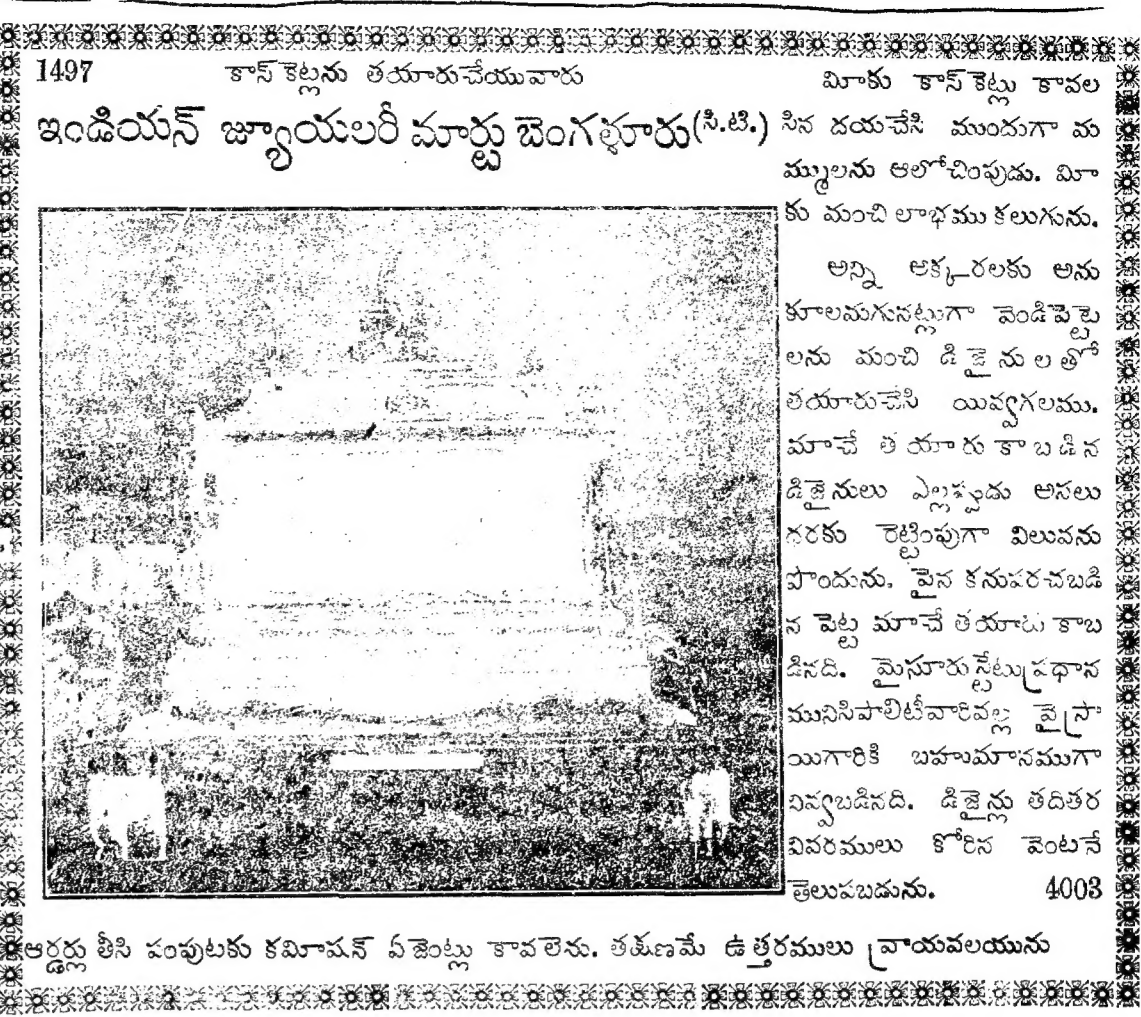 1497 కాస్ కెట్లను తయారుచేయువారు
ఇండియన్ జ్యూయలరీ మార్టు బెంగళూరు (సి.టి.)
మీకు కాస్ కెట్లు కావల
సిన దయచేసి ముందుగా మ
మ్ములను ఆలోచింపుడు. మీ
కు మంచి లాభము కలుగును.
అన్ని అక్కరలకు అను
కూలమగునట్లుగా వెండిపెట్టె
లను మంచి డిజైనులతో
తయారుచేసి యివ్వగలము.
మాచే తయారు కాబడిన
డిజైనులు ఎల్లప్పుడు అసలు
ధరకు రెట్టింపుగా విలువను
పొందును. పైన కనుపరచబడి
న పెట్ట మాచే తయారు కాబ
డినది. మైసూరుస్టేటుప్రధాన
మునిసిపాలిటీవారివల్ల వైస్రా
యిగారికి బహుమానముగా
నివ్వబడినది. డిజైన్లు తదితర
వివరములు కోరిన వెంటనే
తెలుపబడును. 4003
ఆర్డర్లు తీసి పంపుటకు కమీషన్ ఏజెంట్లు కావలెను. తక్షణమే ఉత్తరములు వ్రాయవలయును